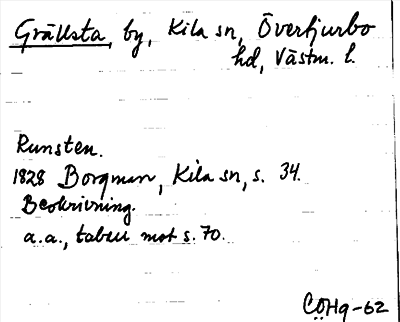 Grällsta, by, Kila sn, Övertjurbo
hd, Västm. l.
Runsten.
1828 Borgman, Kila sn, s. 34.
Beskrivning.
a.a., tabell mot s. 70.
COHg-62